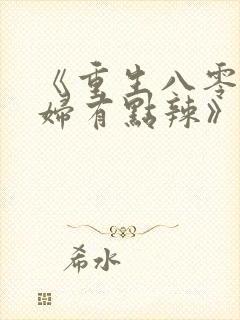 《重生八零
婦有點辣》
希水